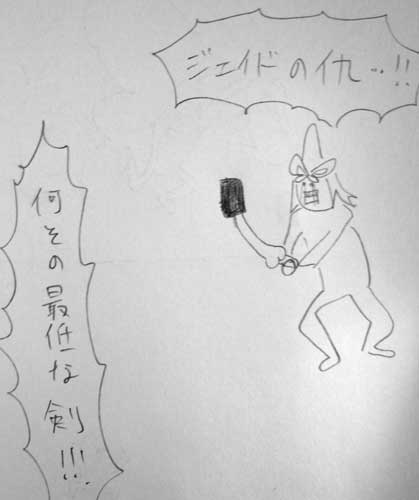 ジェイドの仇…!!
何その最低な剣!!!